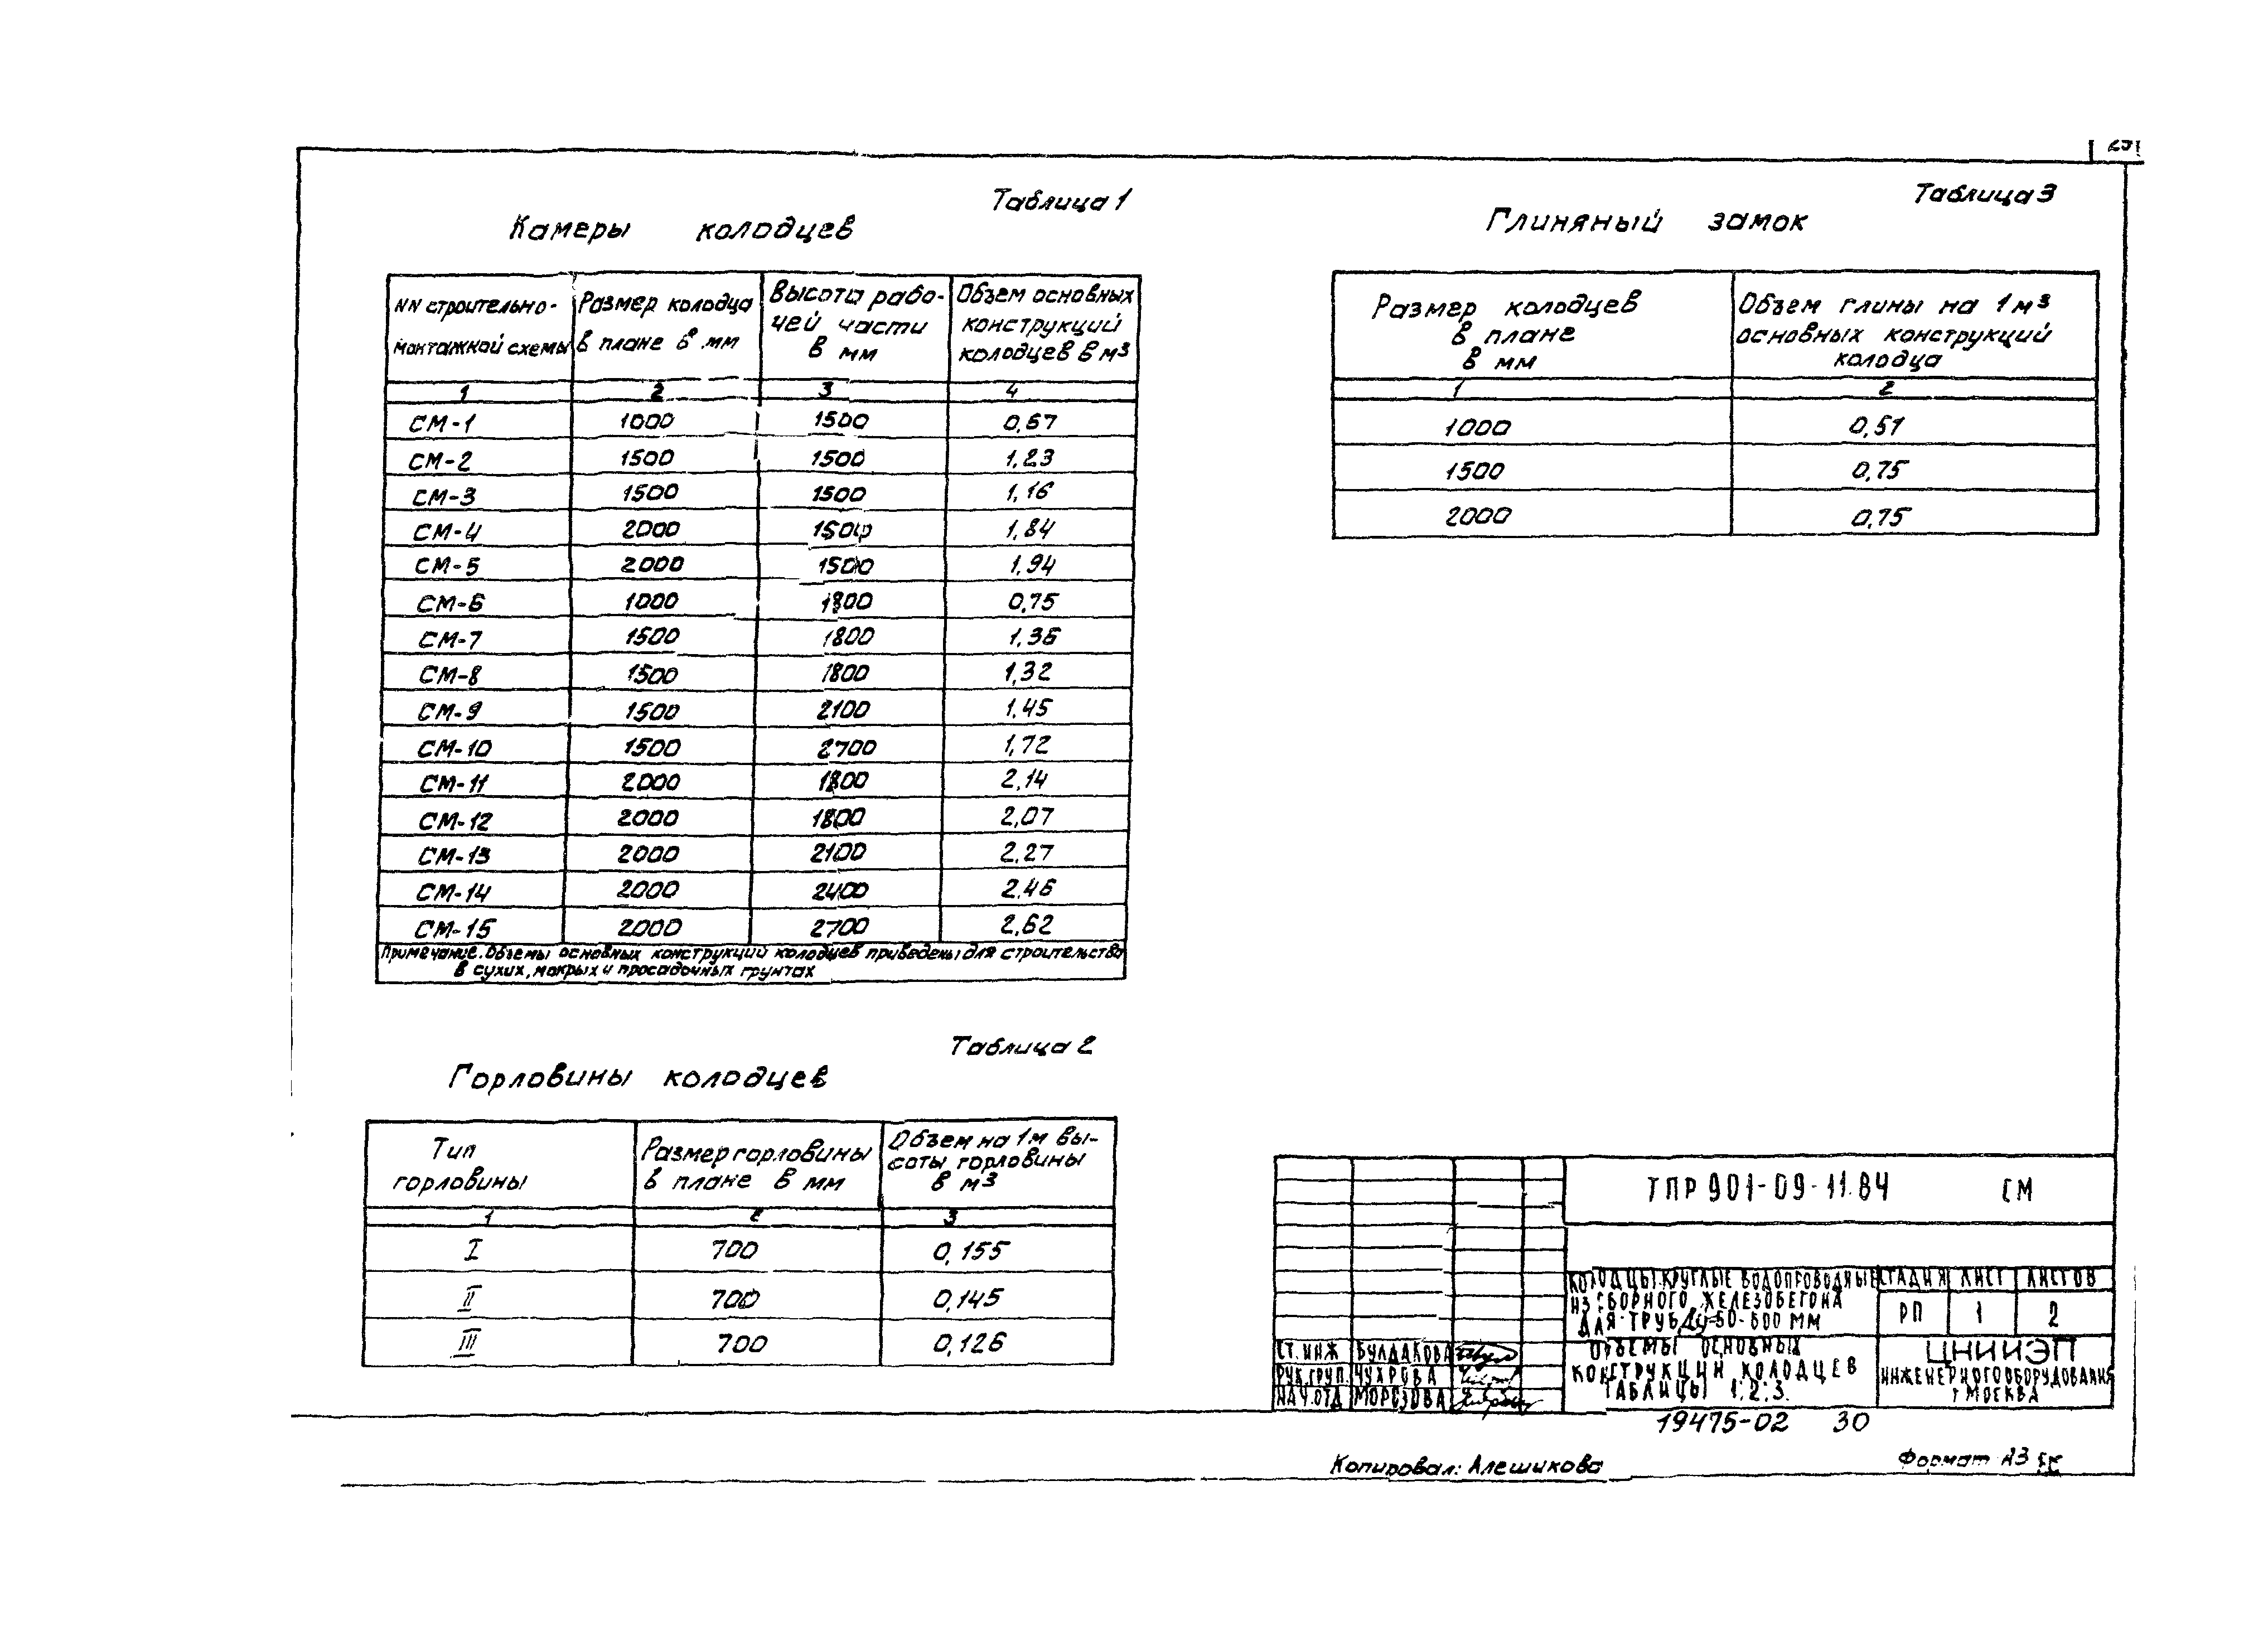 Таблица 1
Камеры колодцев
NN строительно- монтажной схемы | Размер колодца в плане в мм | Высота рабо- чей части в мм | Объем основных конструкций колодцев в м3
1 2 3 4
СМ-1 1000 1500 0,67
СМ-2 1500 1500 1,23
СМ-3 1500 1500 1,16
СМ-4 2000 1500 1,84
СМ-5 2000 1500 1,94
СМ-6 1000 1800 0,75
СМ-7 1500 1800 1,36
СМ-8 1500 1800 1,32
СМ-9 1500 2100 1,45
СМ-10 1500 2700 1,72
СМ-11 2000 1800 2,14
СМ-12 2000 1800 2,07
СМ-13 2000 2100 2,27
СМ-14 2000 2400 2,46
СМ-15 2000 2700 2,62
Примечание. Объемы основных конструкций колодцев приведены для строительства
в сухих, мокрых и просадочных грунтах
Таблица 2
Горловины колодцев
Тип горловины | Размер горловины в плане в мм | Объем на 1м вы- соты горловины в м3
1 2 3
I 700 0,155
II 700 0,145
III 700 0,126
Таблица 3
Глиняный замок
Размер колодцев в плане в мм | Объем глины на 1 м3 основных конструкций колодца
1 2
1000 0,51
1500 0,75
2000 0,75
ТПР 901-09-11.84 СМ
КОЛОДЦЫ КРУГЛЫЕ ВОДОПРОВОДНЫЕ
ИЗ СБОРНОГО ЖЕЛЕЗОБЕТОНА
ДЛЯ ТРУБ Ду=50-600 ММ
СТАДИЯ ЛИСТ ЛИСТОВ
РП 1 2
ОБЪЕМЫ ОСНОВНЫХ
КОНСТРУКЦИЙ КОЛОДЦЕВ
ТАБЛИЦЫ 1.2.3.
ЦНИИЭП
ИНЖЕНЕРНОГО ОБОРУДОВАНИЯ
г МОСКВА
СТ. ИНЖ БУЛДАКОВА
РУК.ГРУП. ЧУХРОВА
НАЧ.ОТД МОРОЗОВА
19475-02 30
Копировал: Алешикова
Формат А3